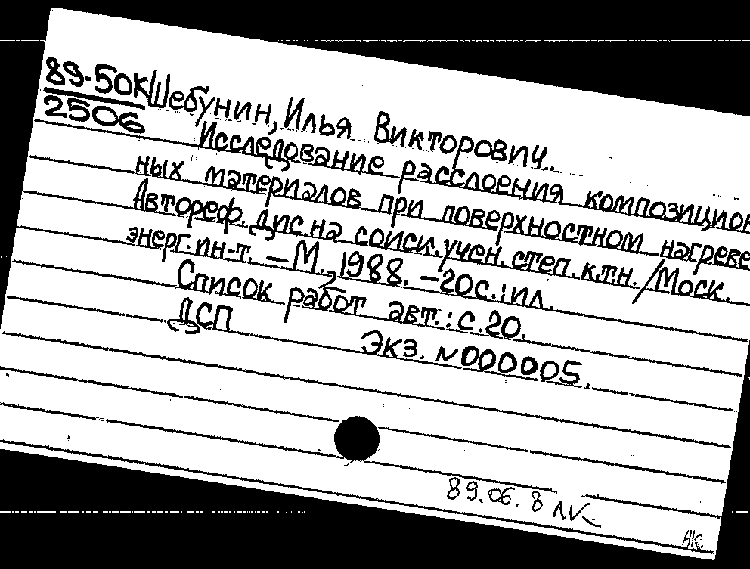 89-50К Шебунин, Илья Викторович.
2506
Исследование расслоения композицион
ных материалов при поверхностном нагреве
Автореф. дис. на соиск. учен. степ. к.т.н. / Моск.
энерг. ин-т. – М., 1988. – 20с.: ил.
Список работ авт.: с.20.
ДСП
Экз. №000005.
89.06.8 ЛК